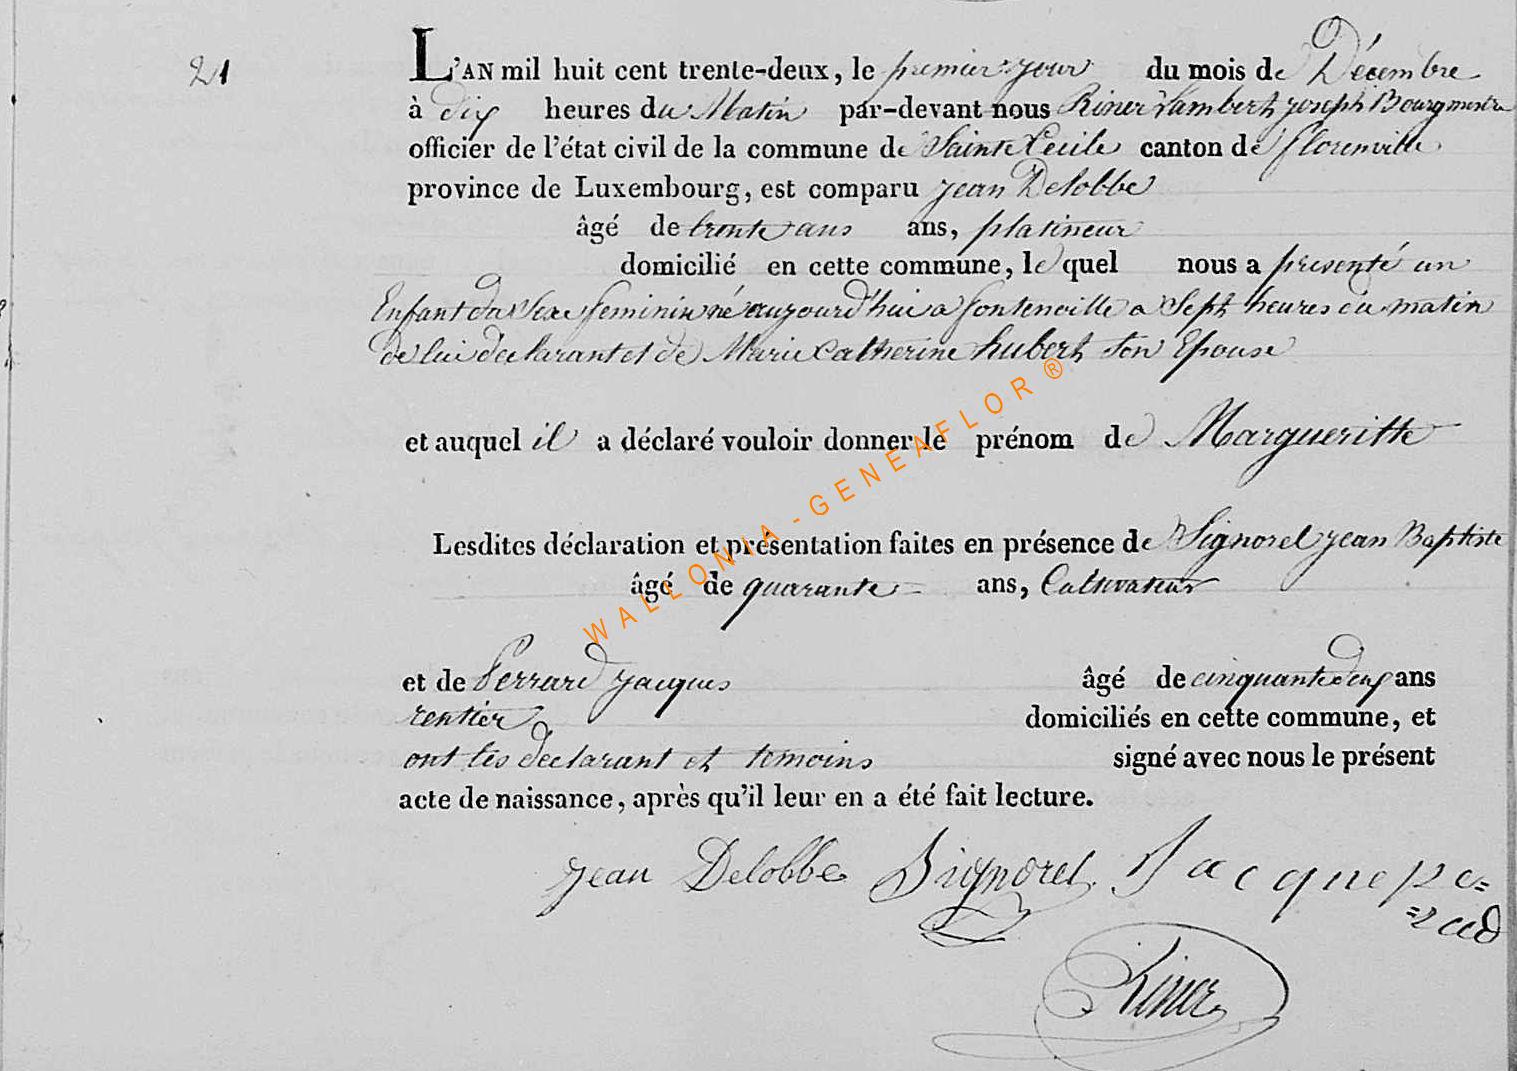 21
L'AN mil huit cent trente-deux, le premier jour du mois de Décembre
à dix heures du Matin par-devant nous Riner Lambert joseph Bourgmestre
officier de l'état civil de la commune de Sainte Cecile canton de florenville
province de Luxembourg, est comparu jean Delobbe
âgé de trente ans ans, platineur
domicilié en cette commune, le quel nous a presenté un
Enfant du Sexe feminin né aujourd'hui a fontenoille a Sept heures du matin
de lui declarant et de Marie Catherine hubert Son Epouse
et auquel il a déclaré vouloir donner le prénom de Margueritte
Lesdites déclaration et présentation faites en présence de Signorel jean Baptiste
âgé de quarante = ans, Cultivateur
et de Perrard jacques âgé de cinquante deux ans
rentier domiciliés en cette commune, et
ont les declarant et temoins signé avec nous le présent
acte de naissance, après qu'il leur en a été fait lecture.
jean Delobbe Signorel Jacque pe=
=rard
Riner
WALLONIA-GENEAFLOR ®